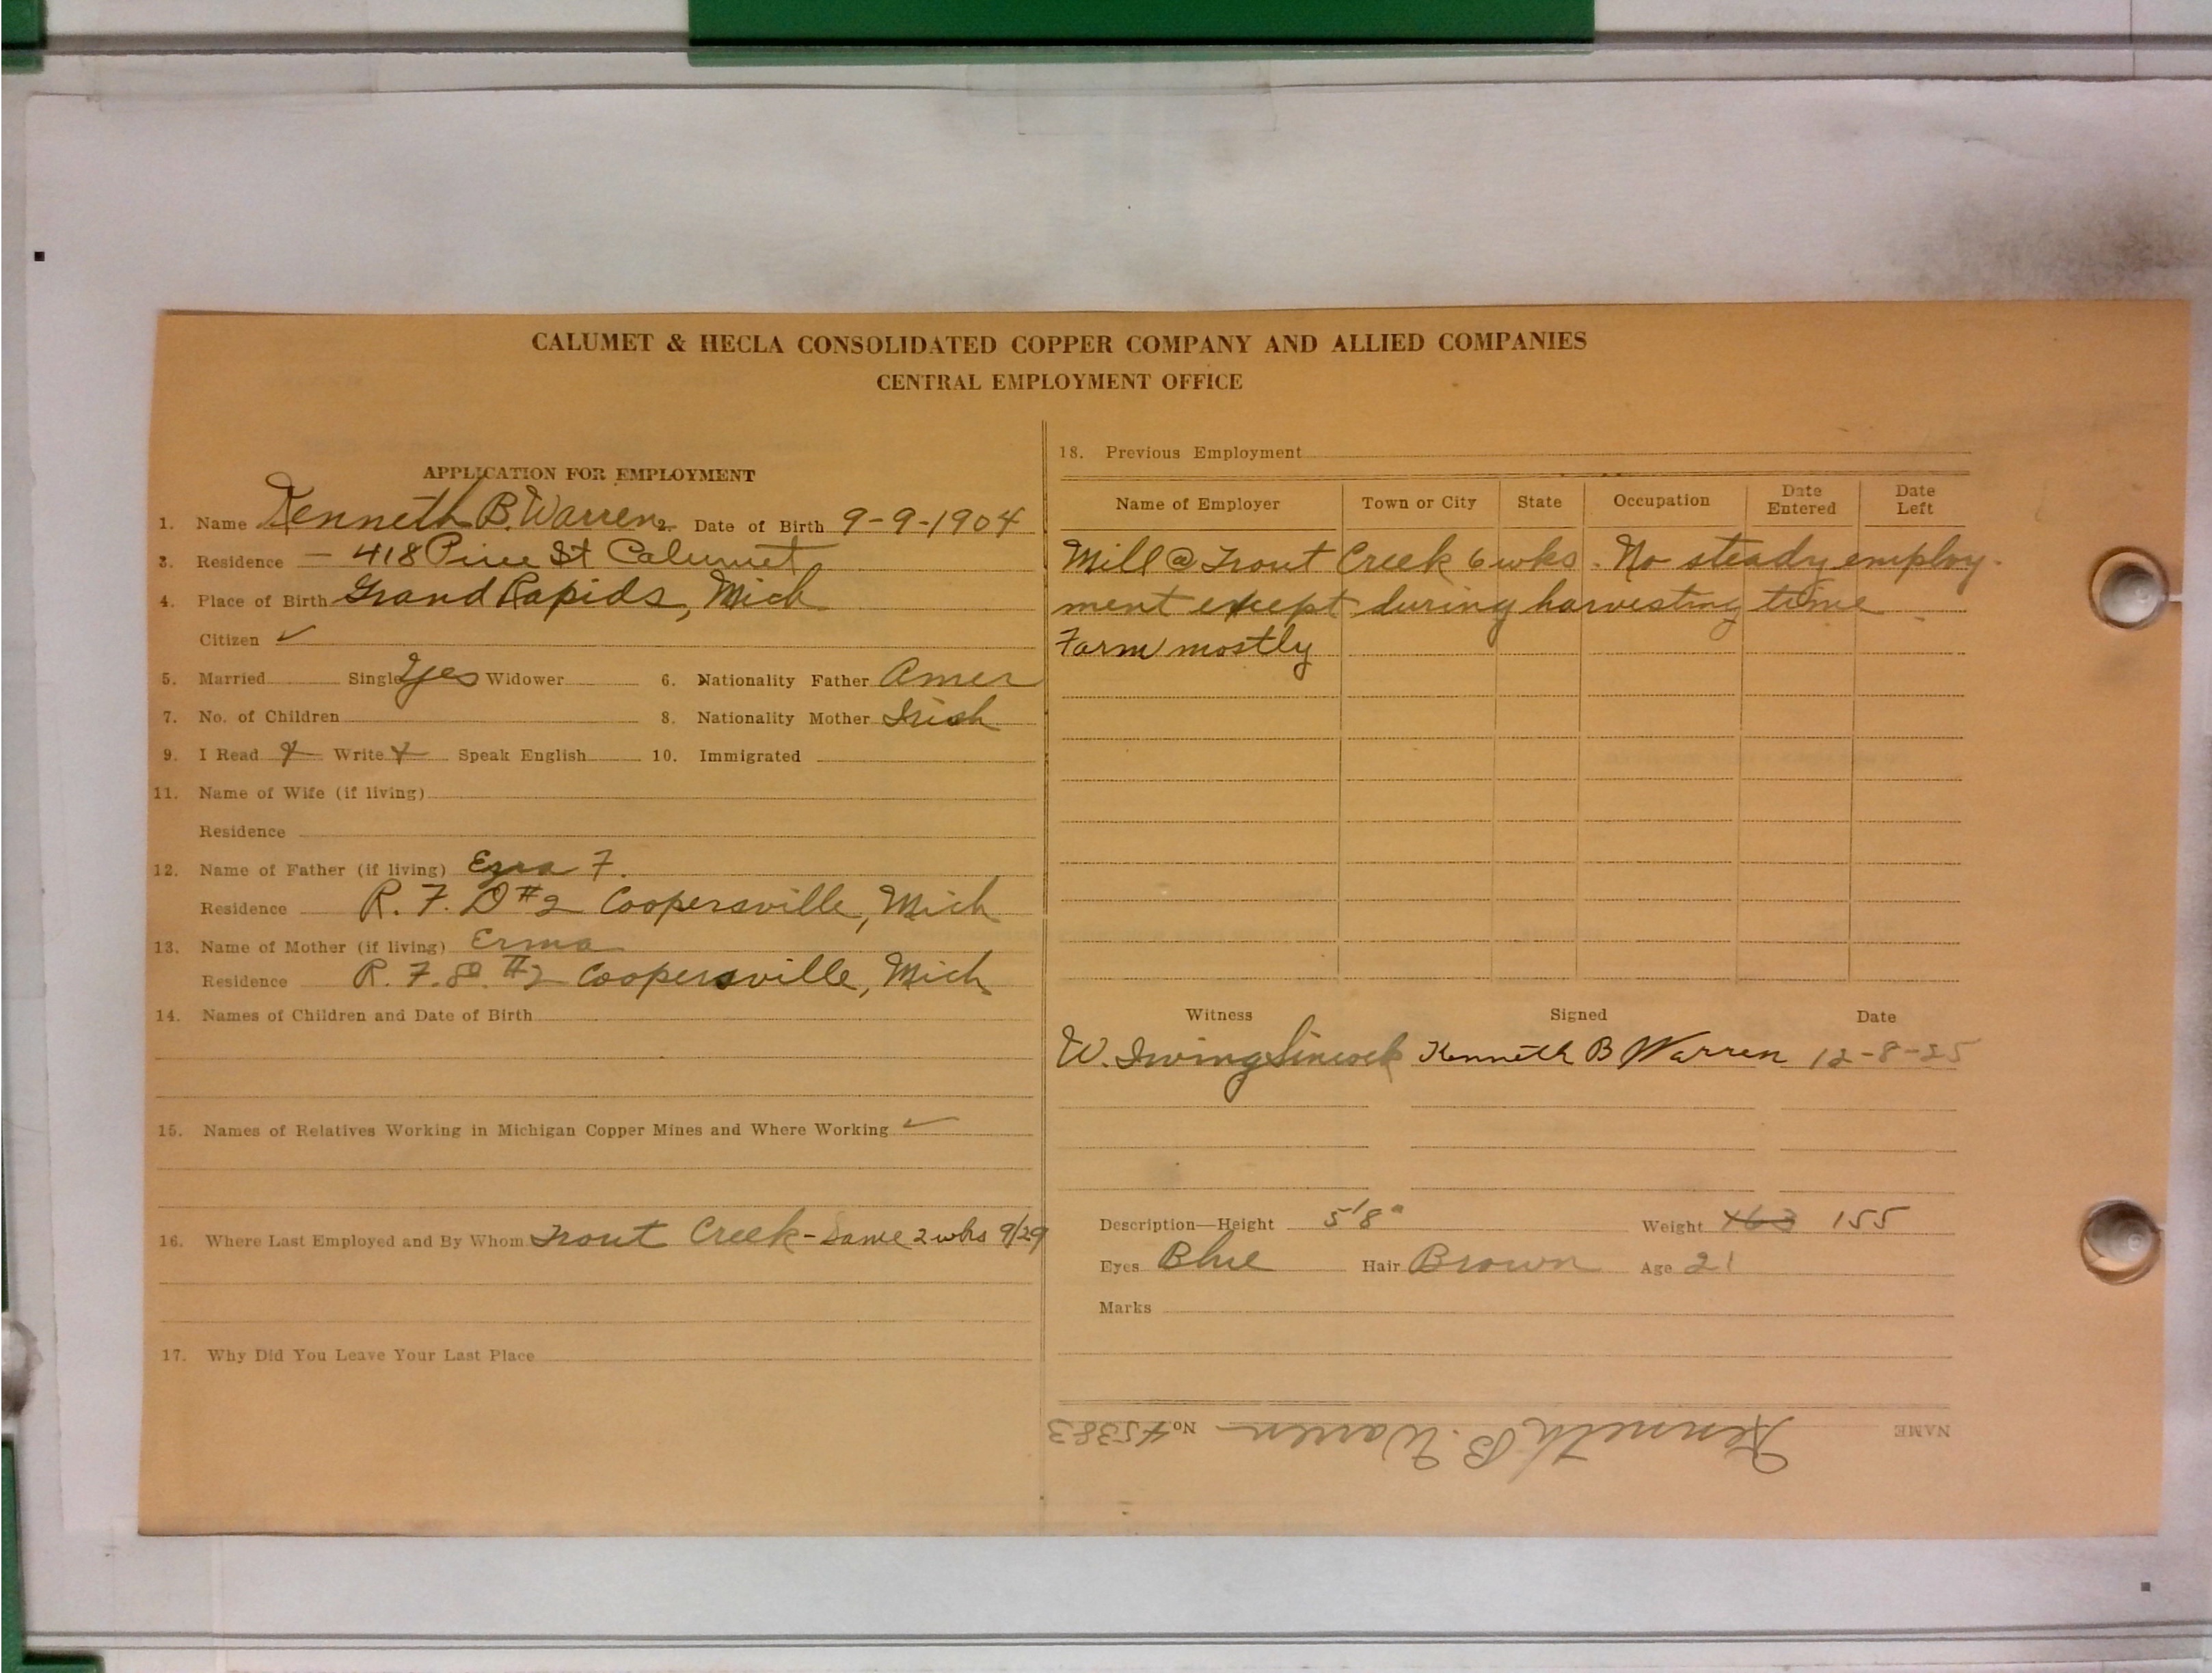 CALUMET & HECLA CONSOLIDATED COPPER COMPANY AND ALLIED COMPANIES
CENTRAL EMPLOYMENT OFFICE
APPLICATION FOR EMPLOYMENT
1. Name Kenneth B. Warren Date of Birth 9-9-1904
3. Residence – 418 Pine St Calumet
4. Place of Birth Grand Rapids, Mich
Citizen ✓
5. Married Single Yes Widower 6. Nationality Father Amer
7. No. of Children 8. Nationality Mother Irish
9. I Read Write Speak English 10. Immigrated
11. Name of Wife (if living)
Residence
12. Name of Father (if living) Ezra F.
Residence R. F. D #2 Coopersville, Mich
13. Name of Mother (if living) Erma
Residence R. F. D. #2 Coopersville, Mich
14. Names of Children and Date of Birth
15. Names of Relatives Working in Michigan Copper Mines and Where Working ✓
16. Where Last Employed and By Whom Trout Creek - Same 2 wks 9/29
17. Why Did You Leave Your Last Place
18. Previous Employment
Name of Employer Town or City State Occupation Date Entered Date Left
Mill @ Trout Creek 6 wks. No steady employ-
ment except during harvesting time
Farm mostly
Witness Signed Date
W. Irving Sincock Kenneth B Warren 12-8-25
Description—Height 5'8" Weight 163 155
Eyes Blue Hair Brown Age 21
Marks
NAME Kenneth B. Warren No. 45383